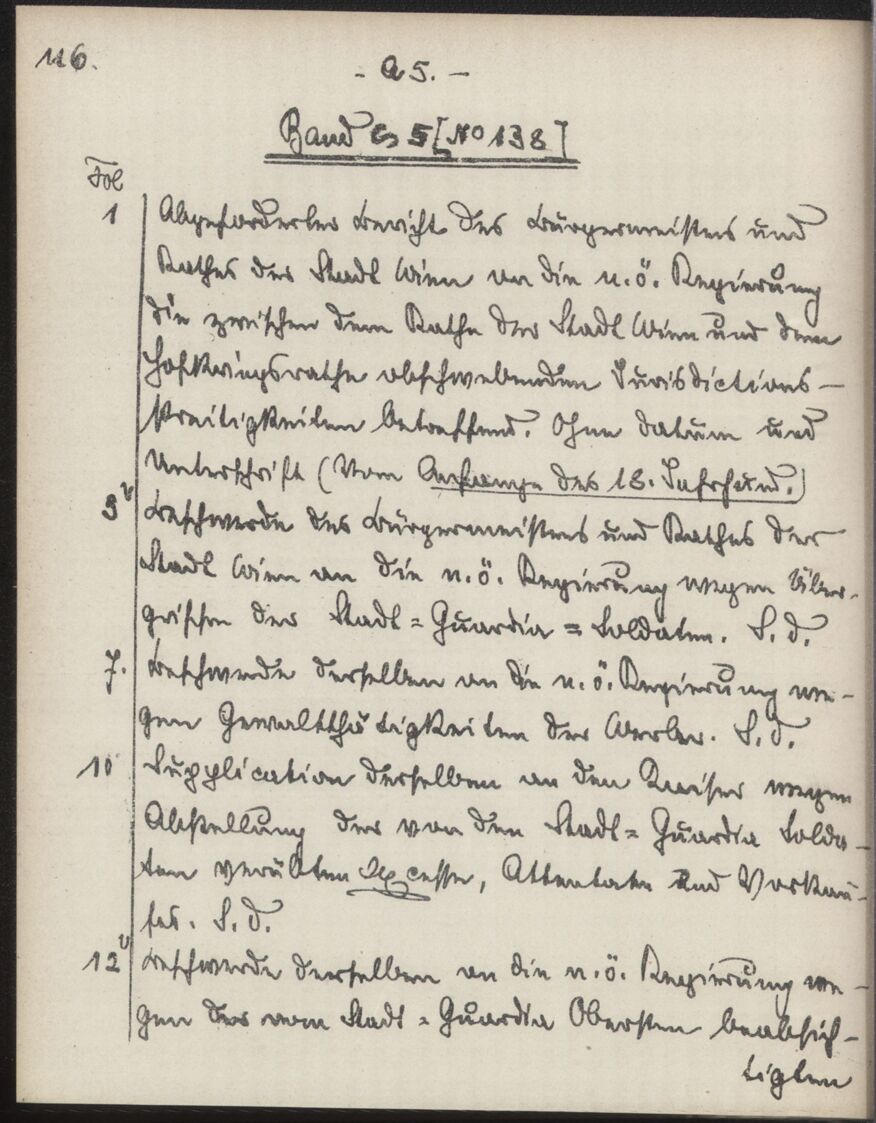 116.
- A 5. -
Band G 5 [No 138]
Fol
1 Abgeforderter Bericht des Bürgermeisters und
Rathes der Stadt Wien an die n.ö. Regierung
die zwischen dem Rathe der Stadt Wien und dem
Hofkriegsrathe obschwebenden Jurisdictions-
streitigkeiten betreffend. Ohne Datum und
Unterschrift (Vom Anfange des 18. Jahrhund.)
3v Beschwerde des Bürgermeisters und Rathes der
Stadt Wien an die n.ö. Regierung wegen Über-
griffen der Stadt=Guardia=Soldaten. S. d.
7. Beschwerde derselben an die n.ö. Regierung we-
gen Gewaltthätigkeiten der Werber. S. d.
10 Supplication derselben an den Kaiser wegen
Abstellung der von den Stadt=Guardia Solda-
ten verübten Excesse, Attentate und Vorkau-
fes. S. d.
12v Beschwerde derselben an die n.ö. Regierung we-
gen des vom Stadt=Guardia Obersten beabsich-
tigten